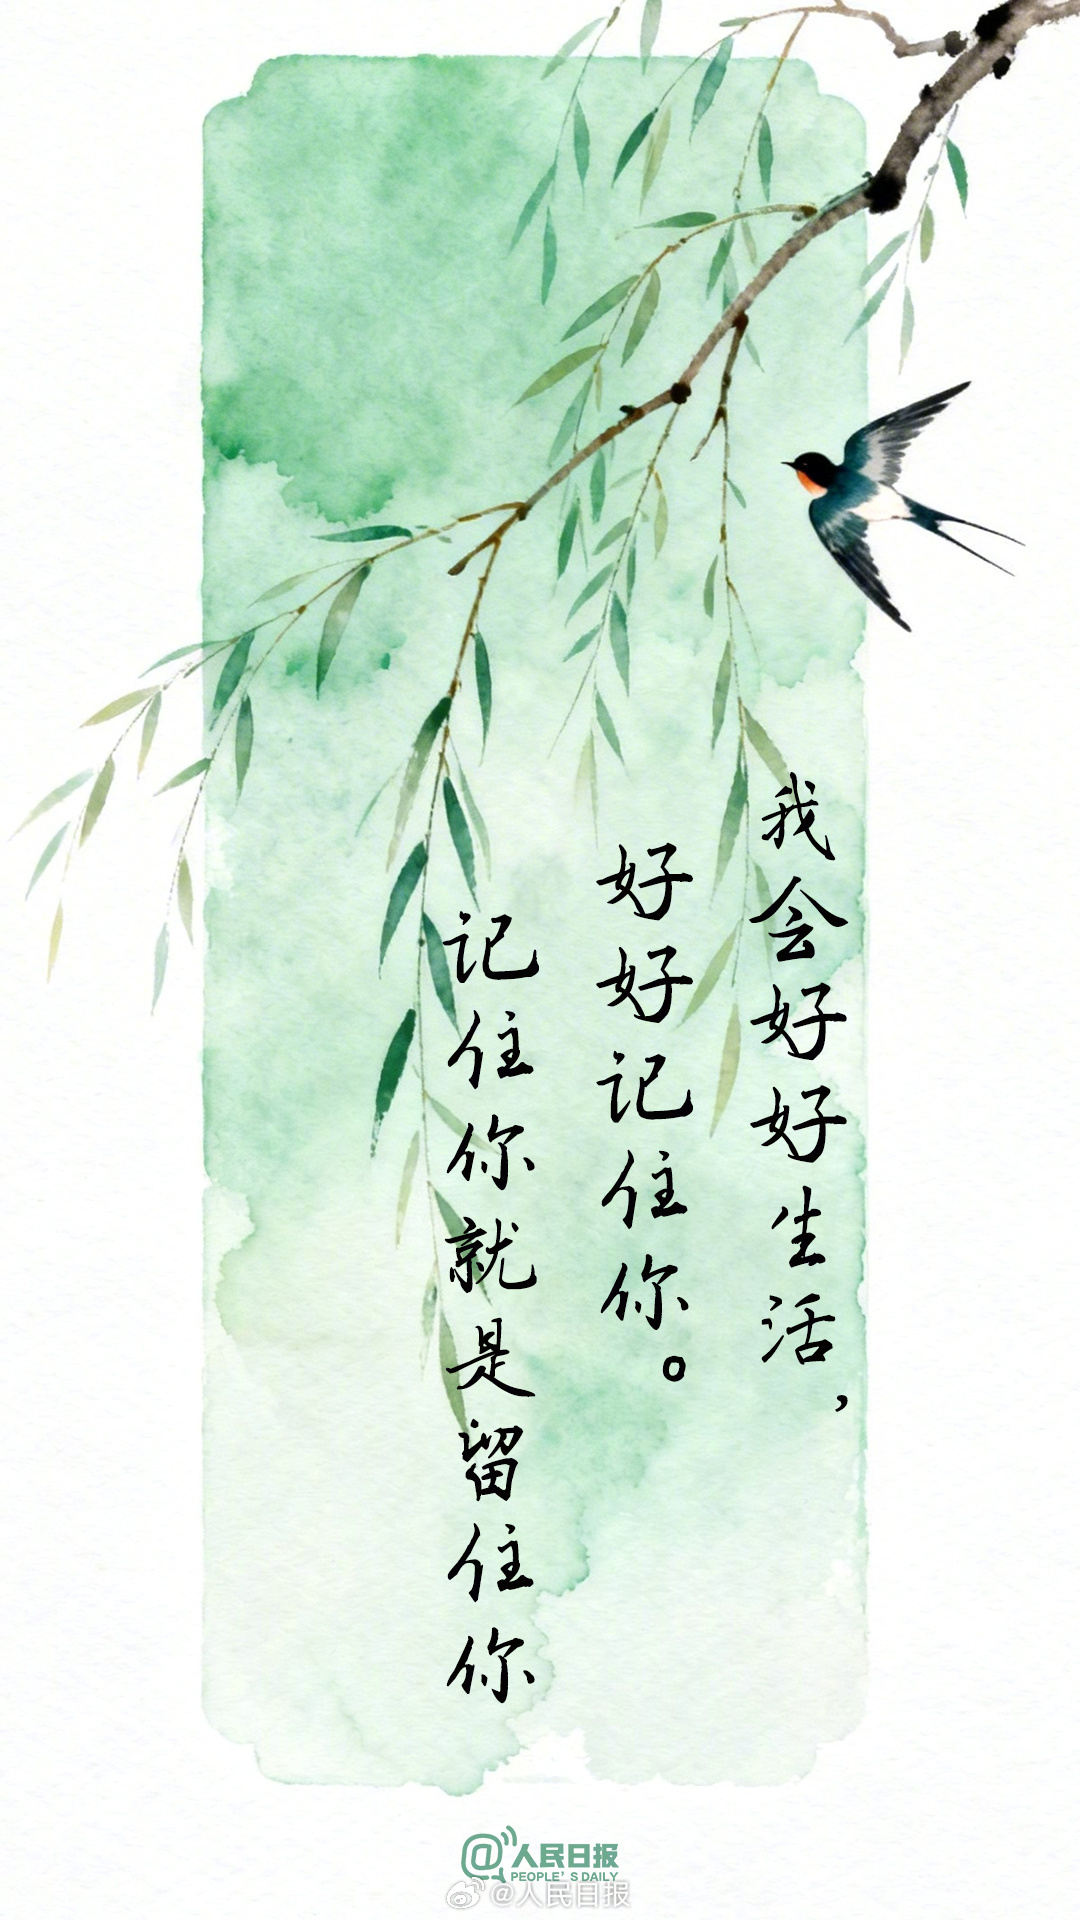 我会好好生活，
好好记住你。
记住你就是留住你
@人民日报
PEOPLE'S DAILY
@人民日报